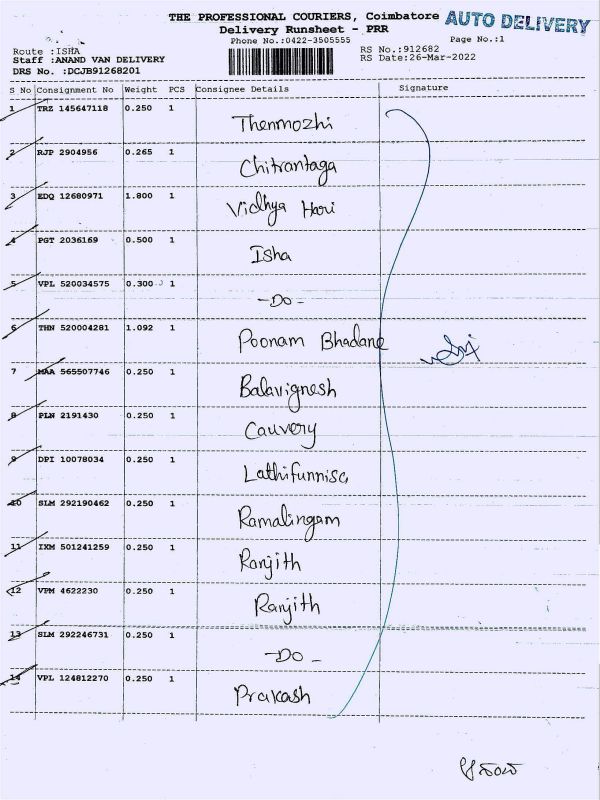 THE PROFESSIONAL COURIERS, Coimbatore AUTO DELIVERY
Delivery Runsheet - PRR
Phone No.:0422-3505555 Page No.:1
Route :ISHA RS No.:912682
Staff :ANAND VAN DELIVERY RS Date:26-Mar-2022
DRS No. :DCJB91268201
S No Consignment No Weight PCS Consignee Details Signature
1 TRZ 145647118 0.250 1 Thenmozhi
2 RJP 2904956 0.265 1 Chitrantaga
3 EDQ 12680971 1.800 1 Vidhya Hari
4 PGT 2036169 0.500 1 Isha
5 VPL 520034575 0.300 1 -Do-
6 THN 520004281 1.092 1 Poonam Bhadane
7 MAA 565507746 0.250 1 Balavignesh
8 PLN 2191430 0.250 1 Cauvery
9 DPI 10078034 0.250 1 Lathifunnisa
10 SLM 292190462 0.250 1 Ramalingam
11 IXM 501241259 0.250 1 Ranjith
12 VPM 4622230 0.250 1 Ranjith
13 SLM 292246731 0.250 1 -Do-
14 VPL 124812270 0.250 1 Prakash